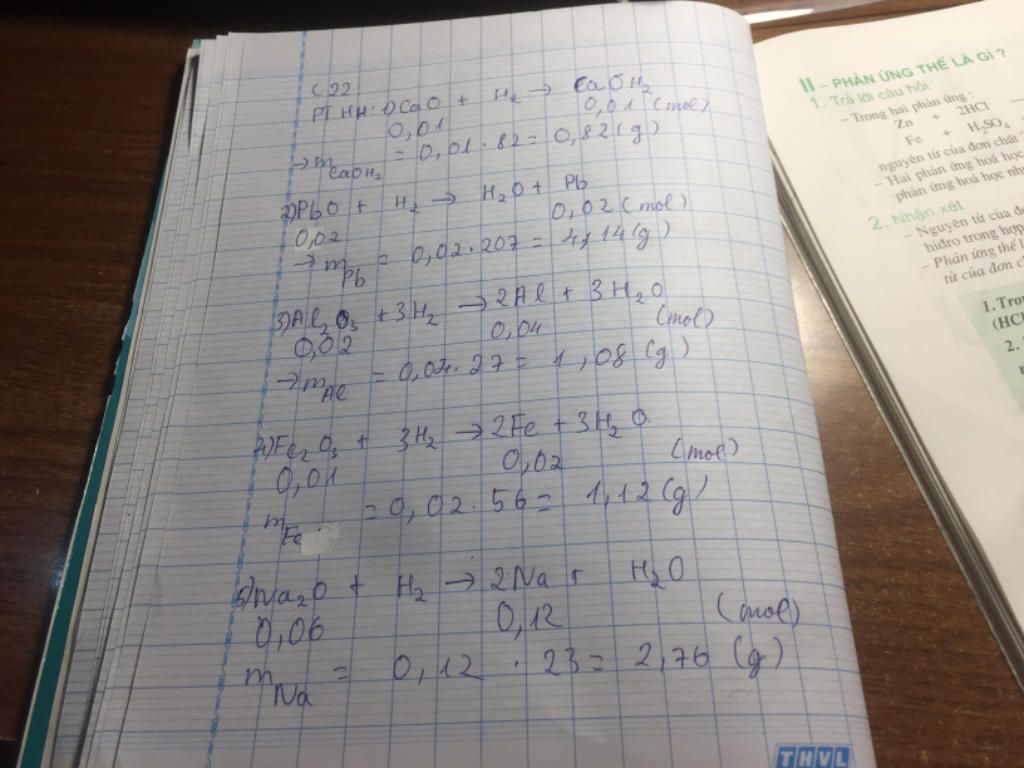 C22
PTHH: 1) CaO + H₂ → CaOH₂
0,01 0,01 (mol)
→ m CaOH₂ = 0,01 . 82 = 0,82 (g)
2) PbO + H₂ → H₂O + Pb
0,02 0,02 (mol)
→ m Pb = 0,02 . 207 = 4,14 (g)
3) Al₂O₃ + 3H₂ → 2Al + 3H₂O
0,02 0,04 (mol)
→ m Al = 0,04 . 27 = 1,08 (g)
4) Fe₂O₃ + 3H₂ → 2Fe + 3H₂O
0,01 0,02 (mol)
m Fe = 0,02 . 56 = 1,12 (g)
5) Na₂O + H₂ → 2Na + H₂O
0,06 0,12 (mol)
m Na = 0,12 . 23 = 2,76 (g)
THVL
II - PHẢN ỨNG THẾ LÀ GÌ ?
1. Trả lời câu hỏi
- Trong hai phản ứng :
Zn + 2HCl
Fe + H₂SO₄
nguyên tử của đơn chất
- Hai phản ứng hoá học
phản ứng hoá học
2. Nhận xét
- Nguyên tử của
hiđro trong hợp
- Phản ứng thế
tử của đơn
1.
(HCl
2.